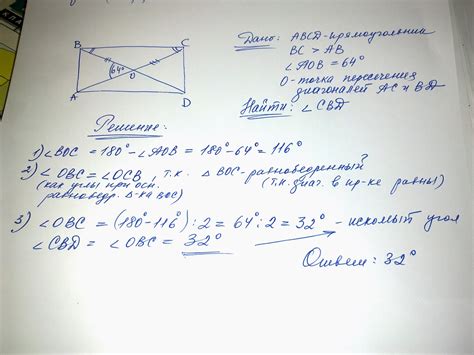 B C
64°
O
A D
Дано: ABCD-прямоугольник
BC > AB
∠AOB = 64°
O-точка пересечения
диагоналей AC и BD
Найти: ∠CBD
Решение:
1) ∠BOC = 180° - ∠AOB = 180° - 64° = 116°
2) ∠OBC = ∠OCB, т.к. ΔBOC-равнобедренный
(как углы при осн. равнобедр. Δ-ка BOC) (т.к. диаг. в пр-ке равны)
3) ∠OBC = (180° - 116°) : 2 = 64° : 2 = 32° - искомый угол
∠CBD = ∠OBC = 32°
Ответ: 32°